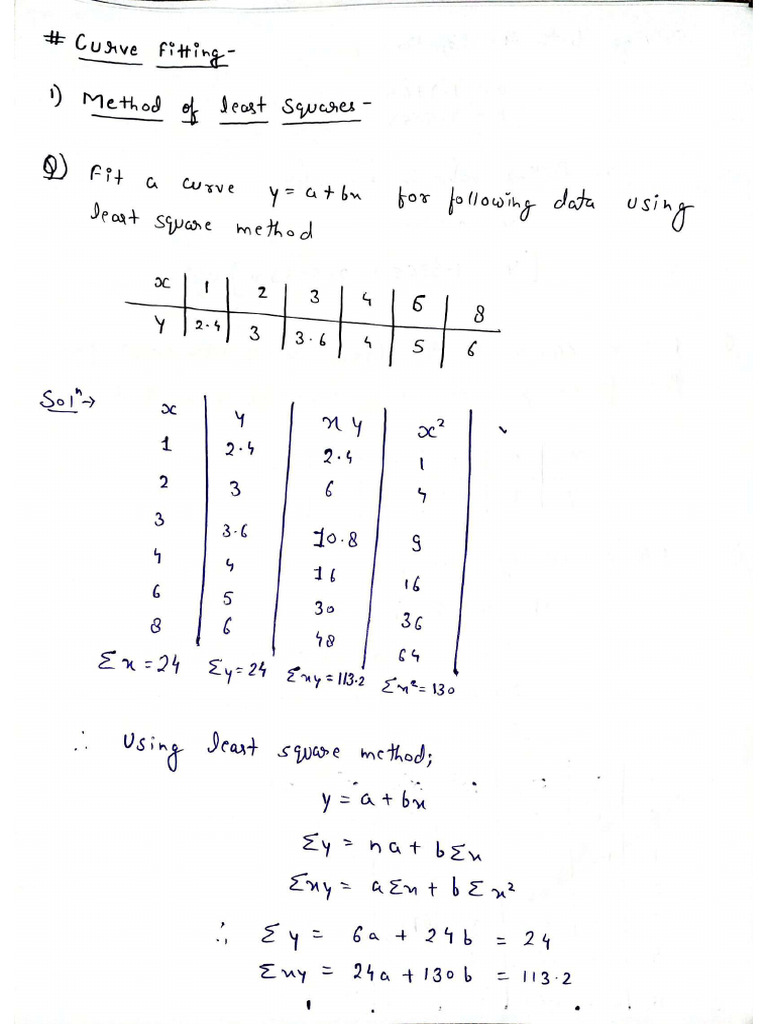 # Curve Fitting-
1) Method of least Squares-
Q) Fit a curve y = a + bx for following data using
least square method
x | 1 | 2 | 3 | 4 | 6 | 8
y | 2.4 | 3 | 3.6 | 4 | 5 | 6
Solⁿ→ x | y | xy | x²
1 | 2.4 | 2.4 | 1
2 | 3 | 6 | 4
3 | 3.6 | 10.8 | 9
4 | 4 | 16 | 16
6 | 5 | 30 | 36
8 | 6 | 48 | 64
Σx = 24 Σy = 24 Σxy = 113.2 Σx² = 130
∴ Using least square method;
y = a + bx
Σy = na + bΣx
Σxy = aΣx + bΣx²
∴ Σy = 6a + 24b = 24
Σxy = 24a + 130b = 113.2